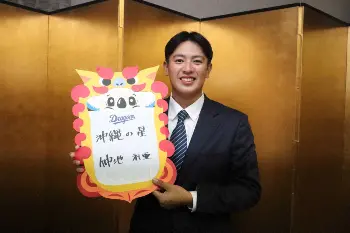 Dragons
沖縄の星
仲地 礼亜